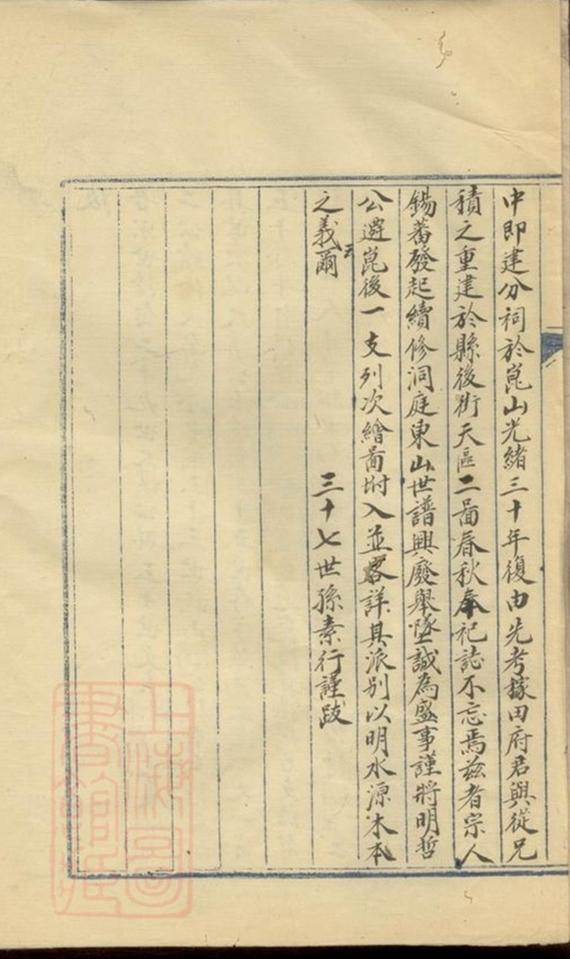 中即建分祠於崑山光緒三十年復由先考稼田府君與從兄
積之重建於縣後街天區二啚春秋奉祀誌不忘焉茲者宗人
錫蕃發起續修洞庭東山世譜興廢舉墜誠為盛事謹將明哲
公遷崑後一支列次繪啚坿入並畧詳其派別以明水源木本
之義爾
三十七世孫素行謹跋
上海圖
書館藏